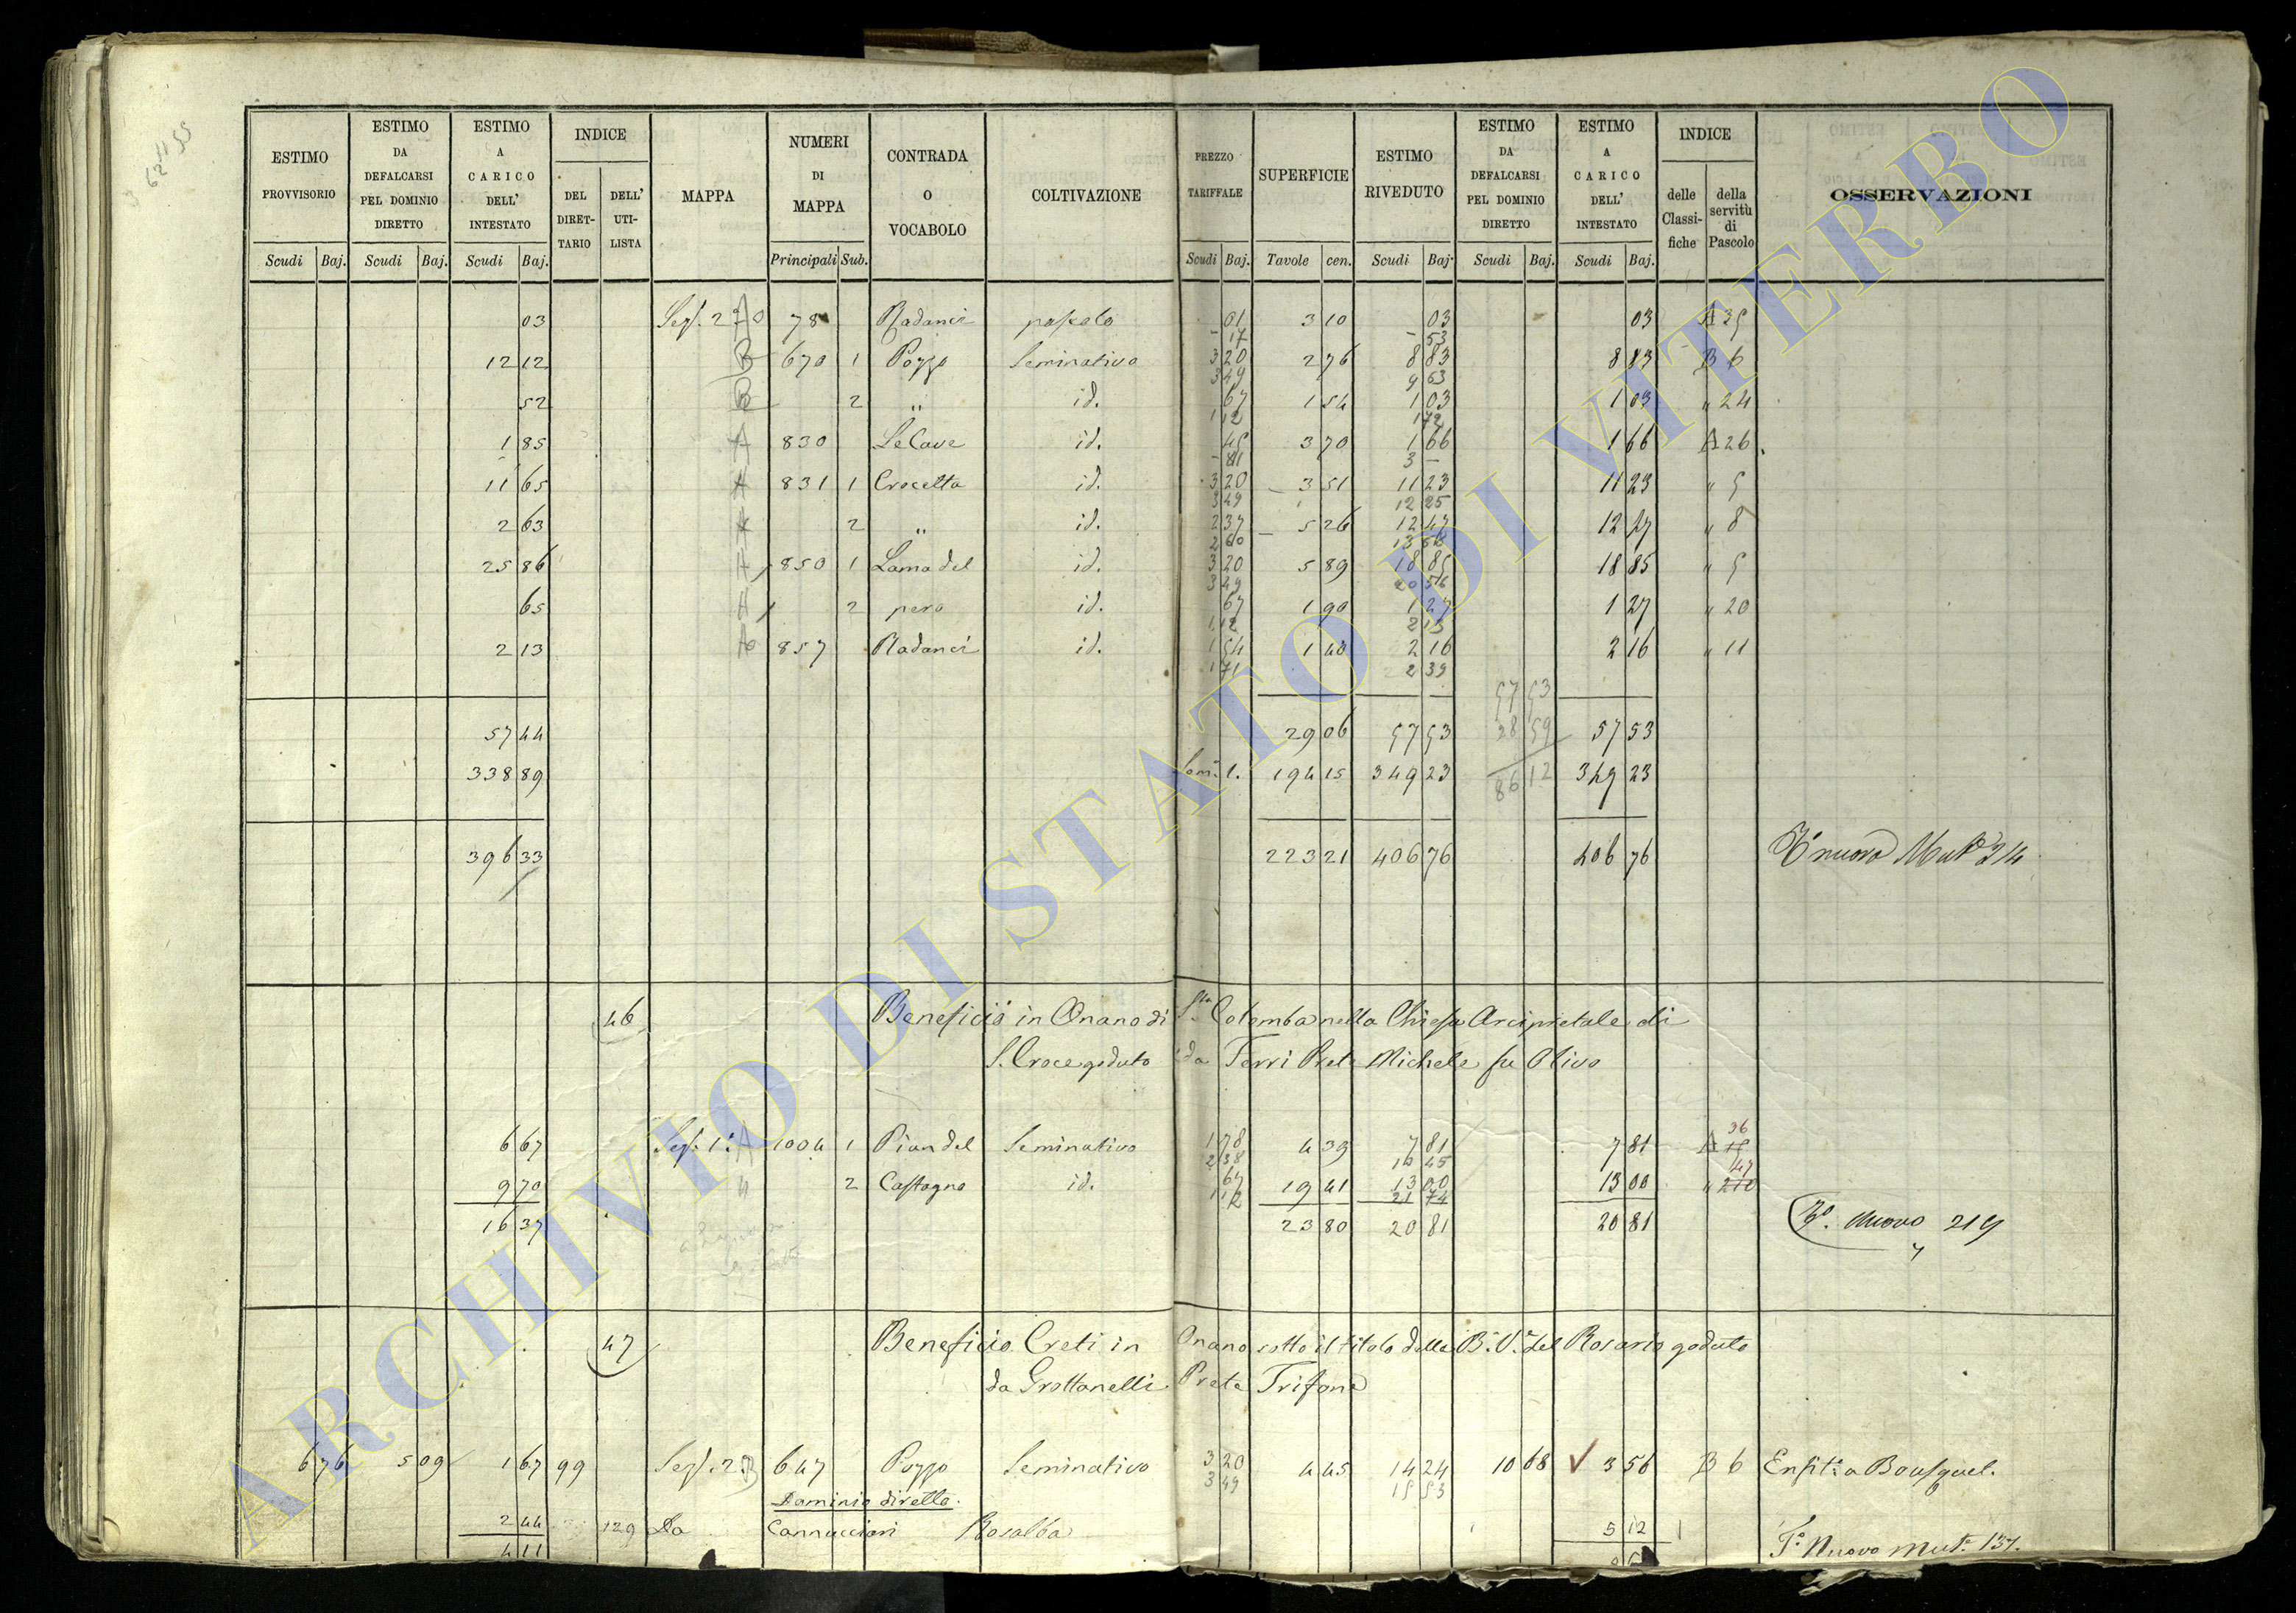 ESTIMO PROVVISORIO | ESTIMO DA DEFALCARSI PEL DOMINIO DIRETTO | ESTIMO A CARICO DELL' INTESTATO | INDICE DEL DIRET-TARIO | DELL' UTI-LISTA | MAPPA | NUMERI DI MAPPA | CONTRADA O VOCABOLO | COLTIVAZIONE | PREZZO TARIFFALE | SUPERFICIE | ESTIMO RIVEDUTO | ESTIMO DA DEFALCARSI PEL DOMINIO DIRETTO | ESTIMO A CARICO DELL' INTESTATO | INDICE delle Classi-fiche | della servitù di Pascolo | OSSERVAZIONI
Scudi Baj. Scudi Baj. Scudi Baj. Principali Sub. Scudi Baj. Tavole cen. Scudi Baj. Scudi Baj. Scudi Baj.
03 78 Radanci pascolo 01 3 10 03 03 A 35
17 53
12 12 B 670 1 Pozzo Seminativo 3 20 2 76 8 83 8 83 B 6
3 49 9 63
52 B 2 " id. 67 1 54 1 03 1 03 " 24
1 12 1 72
1 85 A 830 Le Cave id. 45 3 70 1 66 1 66 A 26
81 3 –
11 65 A 831 1 Crocetta id. 3 20 3 51 11 23 11 23 " 5
3 49 12 25
2 63 2 " id. 2 37 5 26 12 47 12 47 " 8
2 60 13 68
25 86 850 1 Lama del id. 3 20 5 89 18 85 18 85 " 5
3 49 20 56
65 2 pero id. 67 1 90 1 27 1 27 " 20
1 12 2 13
2 13 857 Radanci id. 1 54 1 40 2 16 2 16 " 11
1 71 2 39
57 53
57 44 29 06 57 53 28 59 57 53
338 89 194 15 349 23 86 12 349 23
396 33 223 21 406 76 406 76 T° nuovo Mut° 314
46 Beneficio in Onano di Sta Colomba nella Chiesa Arcipretale di
S. Croce goduto da Ferri Prete Michele fu Olivo
36
6 67 Sez. 1ª A 1004 1 Pian del Seminativo 1 78 4 39 7 81 7 81 A 15
2 38 10 45 47
9 70 2 Castagno id. 67 19 41 13 00 13 00 " 210
1 12 21 74
16 37 23 80 20 81 20 81 T°. nuovo 219
47 Beneficio Creti in Onano sotto il titolo della B. V. del Rosario goduto
da Grottanelli Prete Trifone
6 76 5 09 1 67 99 Sez. 2ª B 647 Pozzo Seminativo 3 20 4 45 14 24 10 68 3 56 B 6
3 49 15 53
Dominio diretto.
2 44 129 Da Cannucciari Rosalba 5 12
4 11 T° Nuovo Mut° 137.